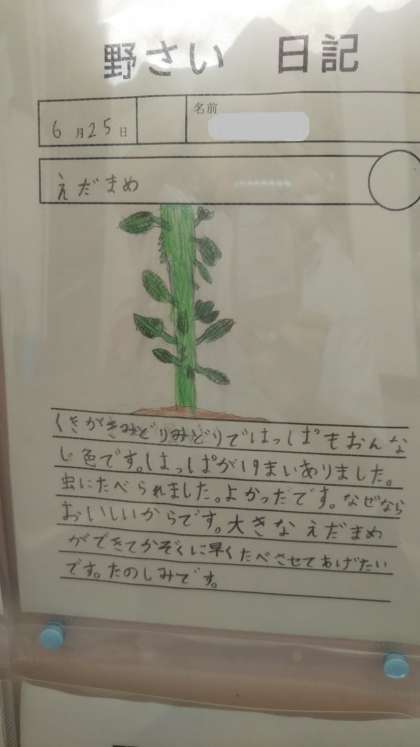 野さい 日記
6月25日
名前
えだまめ
くきがきみどりみどりではっぱもおんな
じ色です。はっぱが19まいありました。
虫にたべられました。よかったです。なぜなら
おいしいからです。大きなえだまめ
ができてかぞくに早くたべさせてあげたい
です。たのしみです。